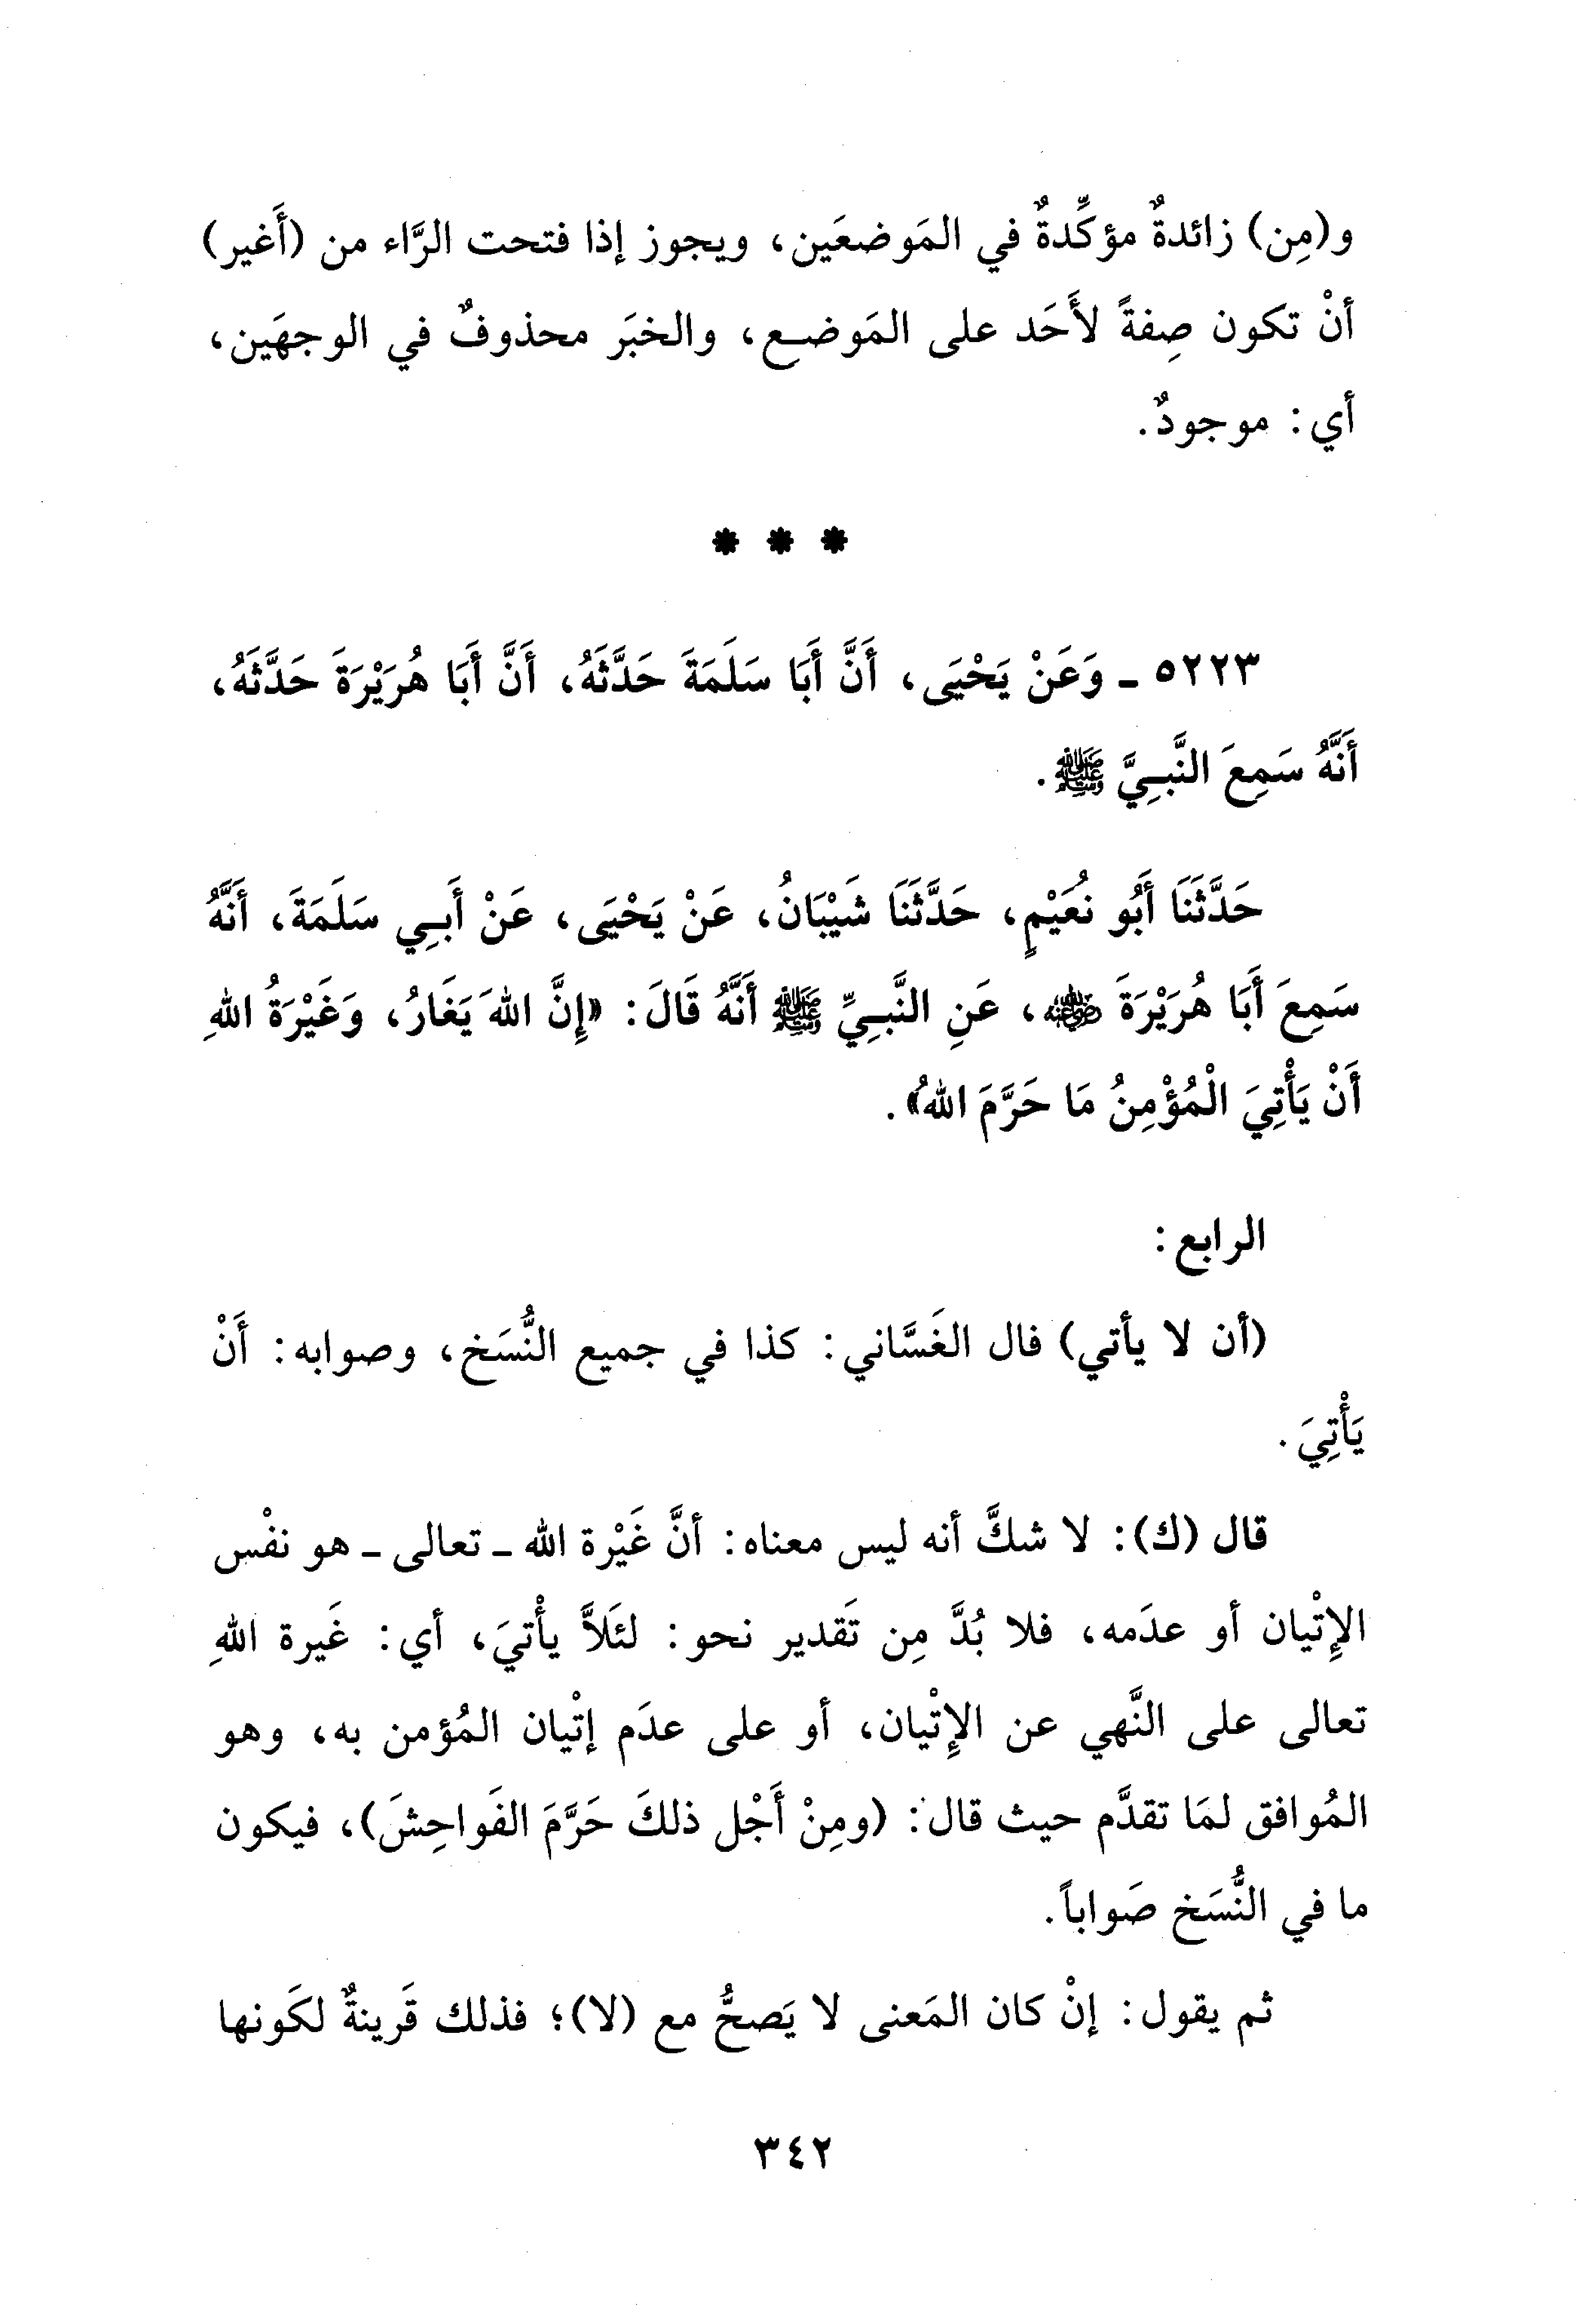 و(مِن) زائدةٌ مؤكِّدةٌ في المَوضعَين، ويجوز إذا فتحت الرَّاء من (أَغير)
أنْ تكون صِفةً لأَحَد على المَوضع، والخبَر محذوفٌ في الوجهَين،
أي: موجودٌ.
* * *
٥٢٢٣ ـ وَعَنْ يَحْيَى، أَنَّ أَبَا سَلَمَةَ حَدَّثَهُ، أَنَّ أَبَا هُرَيْرَةَ حَدَّثَهُ،
أَنَّهُ سَمِعَ النَّبِيَّ ﷺ.
حَدَّثَنَا أَبُو نُعَيْمٍ، حَدَّثَنَا شَيْبَانُ، عَنْ يَحْيَى، عَنْ أَبِي سَلَمَةَ، أَنَّهُ
سَمِعَ أَبَا هُرَيْرَةَ ﵁، عَنِ النَّبِيِّ ﷺ أَنَّهُ قَالَ: «إِنَّ اللهَ يَغَارُ، وَغَيْرَةُ اللهِ
أَنْ يَأْتِيَ الْمُؤْمِنُ مَا حَرَّمَ اللهُ».
الرابع:
(أن لا يأتي) قال الغَسَّاني: كذا في جميع النُّسَخ، وصوابه: أَنْ
يَأْتِيَ.
قال (ك): لا شكَّ أنه ليس معناه: أنَّ غَيْرة الله ـ تعالى ـ هو نفْس
الإِتْيان أو عدَمه، فلا بُدَّ مِن تَقدير نحو: لئَلاَّ يأْتيَ، أي: غَيرة اللهِ
تعالى على النَّهي عن الإِتْيان، أو على عدَم إتْيان المُؤمن به، وهو
المُوافق لمَا تقدَّم حيث قال: (ومِنْ أَجْل ذلكَ حَرَّمَ الفَواحِشَ)، فيكون
ما في النُّسَخ صَواباً.
ثم يقول: إنْ كان المَعنى لا يَصحُّ مع (لا)؛ فذلك قَرينةٌ لكَونها
٣٤٢